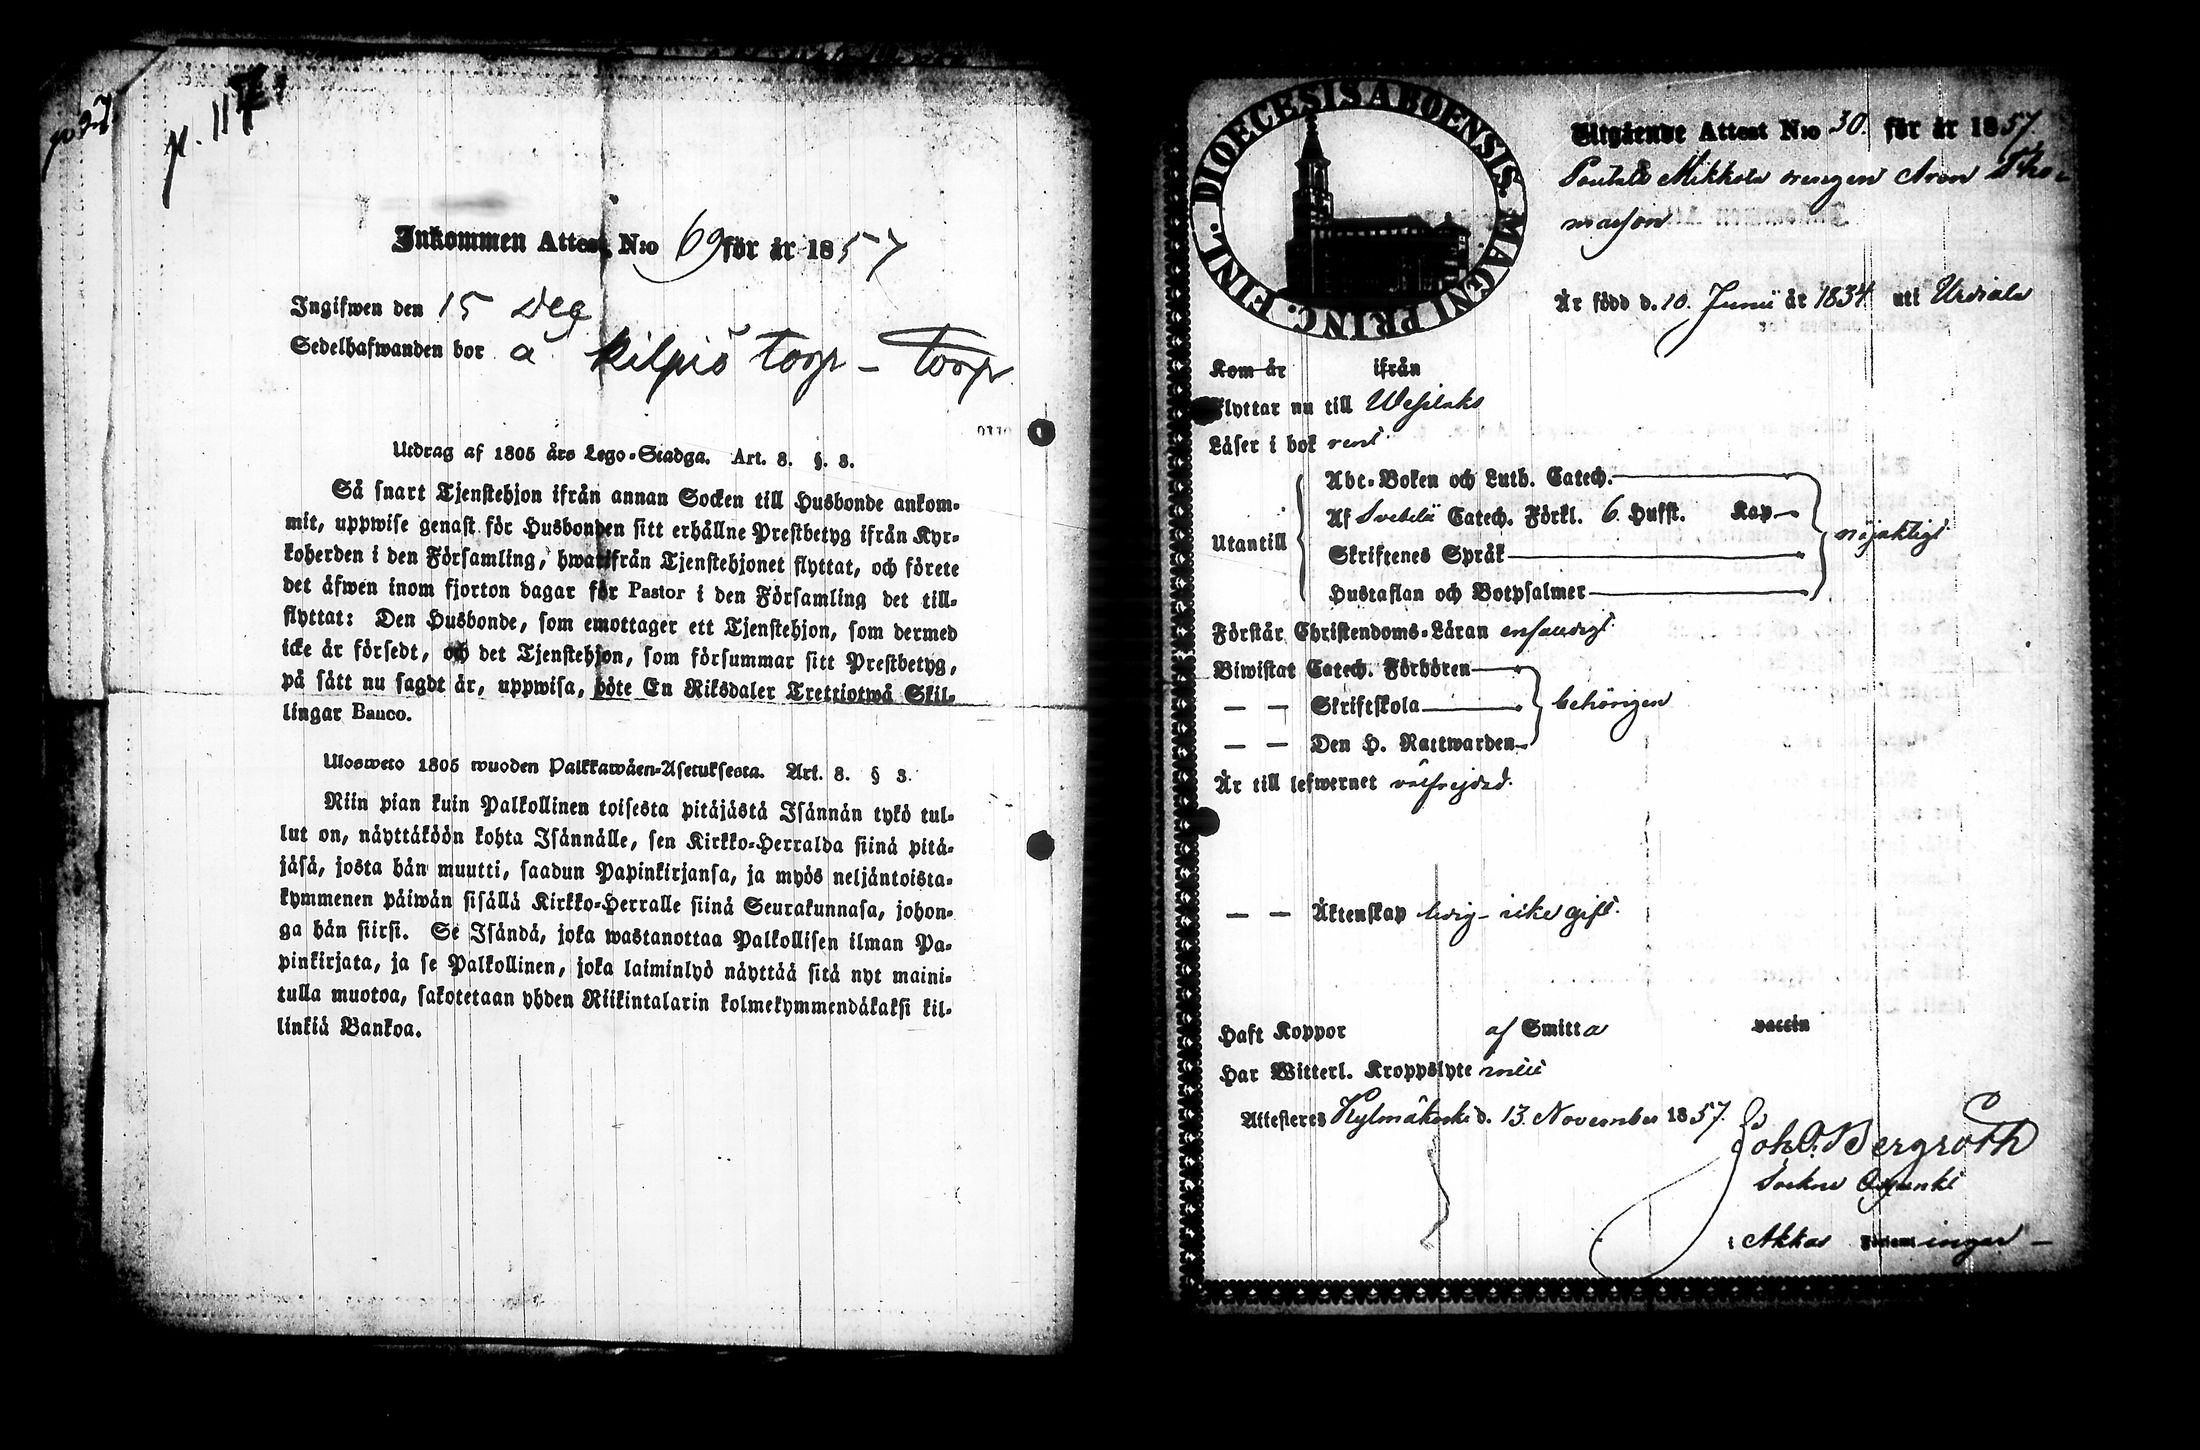 p. 117
Inkommen Attest N:o 69 för år 1857
Ingifwen den 15 Dec
Sedelhafwanden bor å Kilpiö torp – torp
Utdrag af 1805 års Lego-Stadga. Art. 8. §. 3.
Så snart Tjenstehjon ifrån annan Socken till Husbonde ankom-
mit, uppwise genast för Husbonden sitt erhållne Prestbetyg ifrån Kyr-
koherden i den Församling, hwarifrån Tjenstehjonet flyttat, och förete
det äfwen inom fjorton dagar för Pastor i den Församling det till-
flyttat: Den Husbonde, som emottager ett Tjenstehjon, som dermed
icke är försedt, och det Tjenstehjon, som försummar sitt Prestbetyg,
på sätt nu sagdt är, uppwisa, böte En Riksdaler Trettiotwå Skil-
lingar Banco.
Ulosweto 1805 wuoden Palkkawäen-Asetuksesta. Art. 8. § 3.
Niin pian kuin Palkollinen toisesta pitäjästä Isännän tykö tul-
lut on, näyttäköön kohta Isännälle, sen Kirkko-Herralda siinä pitä-
jäsä, josta hän muutti, saadun Papinkirjansa, ja myös neljäntoista-
kymmenen päiwän sisällä Kirkko-Herralle siinä Seurakunnasa, johon-
ga hän siirsi. Se Isändä, joka wastanottaa Palkollisen ilman Pa-
pinkirjata, ja se Palkollinen, joka laiminlyö näyttää sitä nyt maini-
tulla muotoa, sakotetaan yhden Riikintalarin kolmekymmendäkaksi kil-
linkiä Bankoa.
DIOECESIS ABOENSIS. MAGNI PRINC. FINL.
Utgående Attest N:o 30. för år 1857.
Mikkola drengen Aron Tho-
masson
Är född d. 10. Junii år 1834 uti Urdiala
Kom år ifrån
Flyttar nu till Wesilaks
Läser i bok rent.
Utantill
Abc-Boken och Luth. Catech.
Af Svebelii Catech. Förkl. 6. Hufst. Kap
Skriftenes Språk
Hustaflan och Botpsalmer
nöjaktigt
Förstår Christendoms-Läran enfaldigt.
Biwistat Catech. Förhören
— — Skriftskola
— — Den H. Nattwarden
behörigen
Är till lefwernet välfrejdad.
— — Äktenskap ledig - icke gift.
Haft Koppor af Smitta vaccin
Har Witterl. Kroppslyte
Attesteres Kylmäkoski d. 13. November 1857.
Joh. O. Bergroth
Sockne Adjunkt
i Akkas Församlingar —